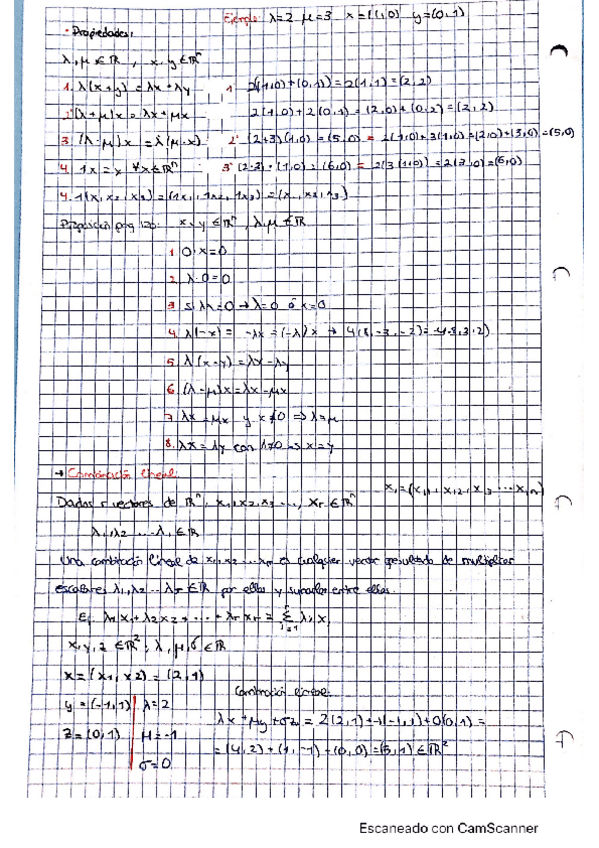 Ejemplo: λ=2 μ=3 x=(1,0) y=(0,1)
• Propiedades:
λ, μ ∈ ℝ, x, y ∈ ℝⁿ
1. λ(x+y) = λx+λy 1· 2((1,0)+(0,1)) = 2(1,1) = (2,2)
2. (λ+μ)x = λx+μx 2(1,0)+2(0,1) = (2,0)+(0,2) = (2,2)
3. (λ·μ)x = λ(μ·x) 2· (2+3)(1,0) = (5,0) = 2(1,0)+3(1,0) = (2,0)+(3,0) = (5,0)
4. 1x = x ∀x∈ℝⁿ 3· (2·3)·(1,0) = (6,0) = 2(3(1,0)) = 2(3,0) = (6,0)
4. 1(x₁, x₂, x₃) = (1x₁, 1x₂, 1x₃) = (x₁, x₂, x₃)
Proposición pag 120: x, y ∈ ℝⁿ, λ, μ ∈ ℝ
1. 0·x=0
2. λ·0=0
3. si λx=0 → λ=0 ó x=0
4. λ(-x) = -λx = (-λ)x → 4(8,-3,-2) = -4(-8,3,2)
5. λ(x-y) = λx-λy
6. (λ-μ)x = λx-μx
7. λx = μx y x≠0 => λ=μ
8. λx = λy con λ≠0 → x=y
→ Combinación lineal:
Dados r vectores de ℝⁿ: x₁, x₂, x₃ ..., xᵣ ∈ ℝⁿ x₁=(x₁₁, x₁₂, x₁₃ ... x₁ₙ)
λ₁, λ₂ ... λᵣ ∈ ℝ
Una combinación lineal de x₁, x₂ ... xᵣ es cualquier vector resultado de multiplicar
escalares λ₁, λ₂ ... λᵣ ∈ ℝ por ellos y sumarlos entre ellos.
Ej. λ₁x₁+λ₂x₂+...+λᵣxᵣ = Σ λᵢxᵢ
x, y, z ∈ ℝ²; λ, μ, σ ∈ ℝ
x = (x₁, x₂) = (2,1)
Combinación lineal:
y = (-1,1) λ=2
λx+μy+σz = 2(2,1)+-1(-1,1)+0(0,1) =
z = (0,1) μ=-1
= (4,2)+(1,-1)+(0,0) = (5,1) ∈ ℝ²
σ=0
Escaneado con CamScanner